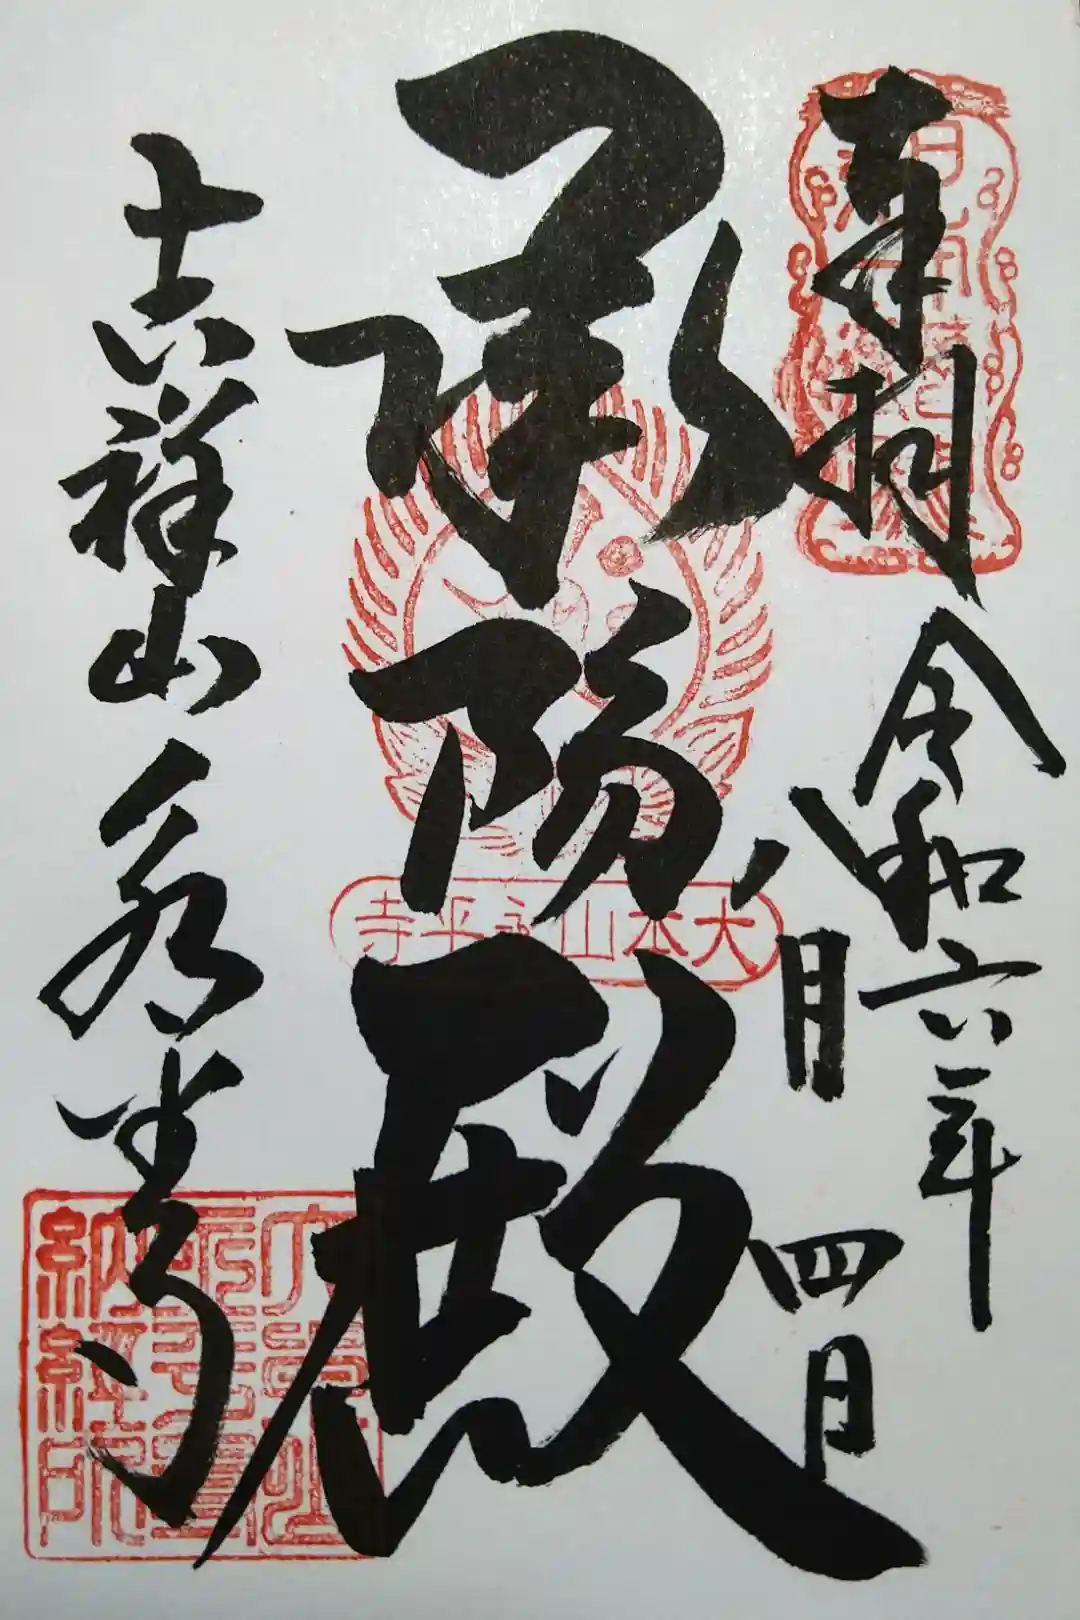 奉拝
令和六年
八月 四日
承陽殿
大本山永平寺
吉祥山永平寺
納経所